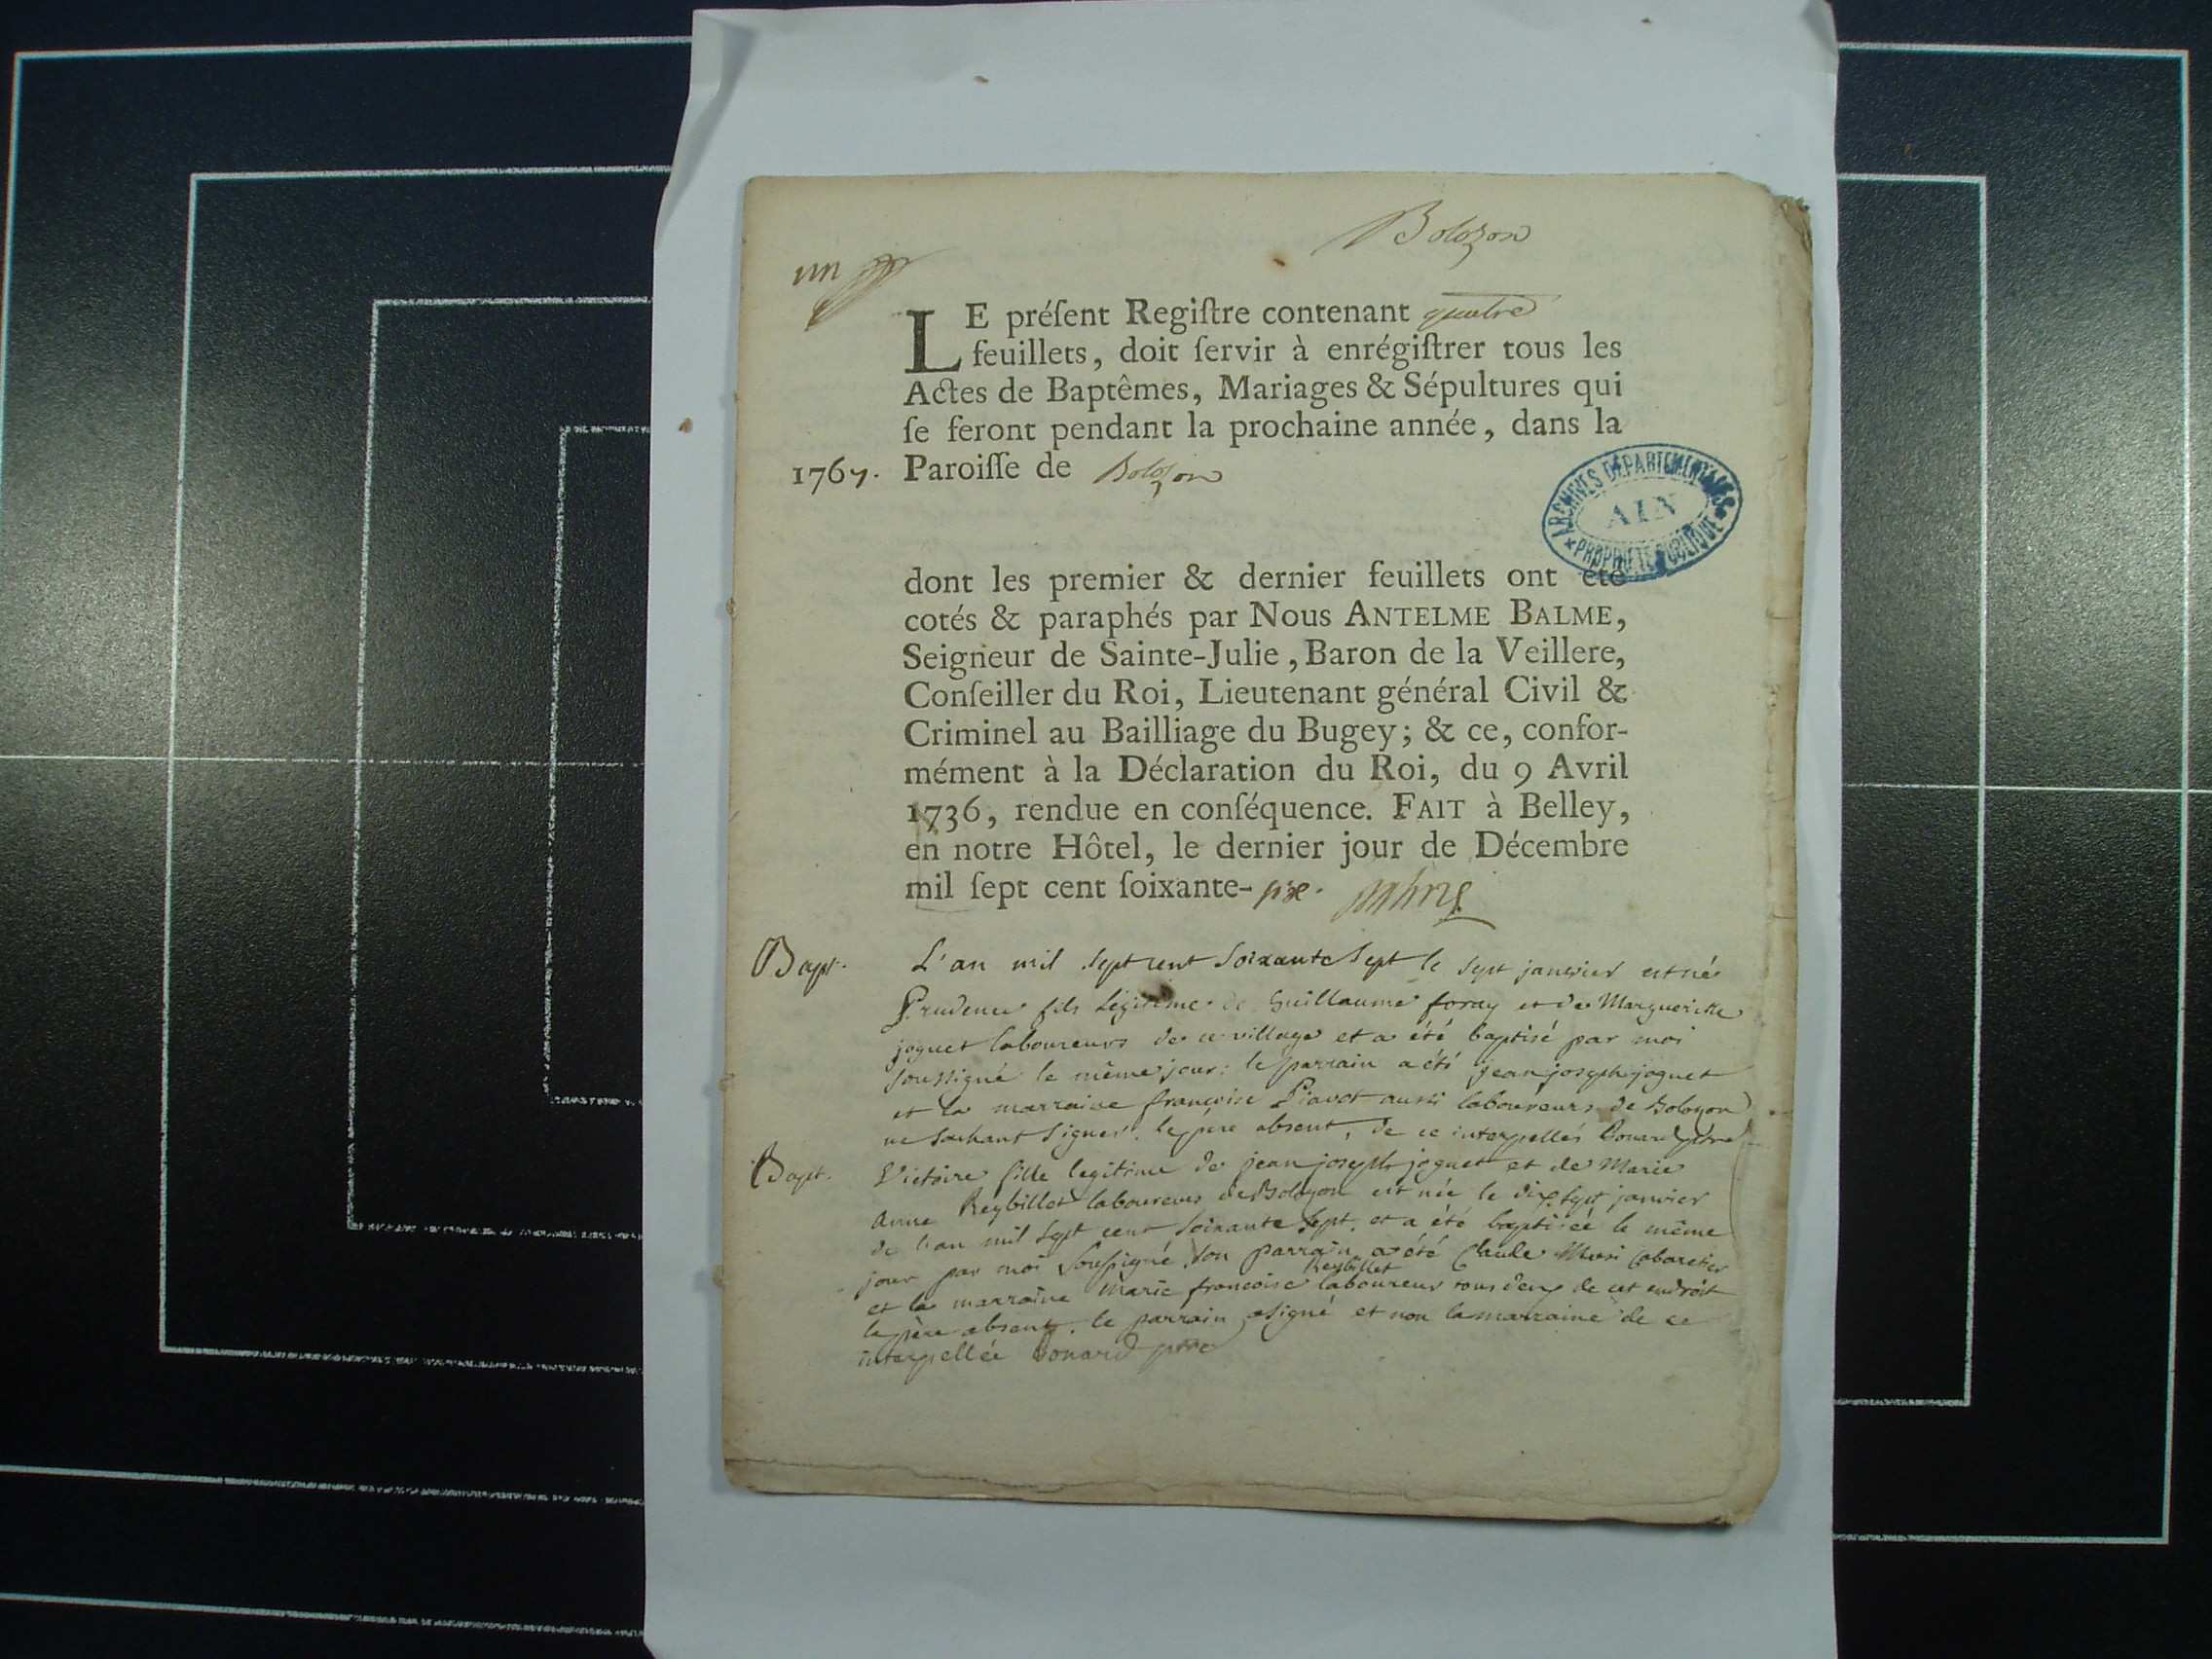 Bolozon
un
LE préſent Regiſtre contenant quatre
feuillets, doit ſervir à enrégiſtrer tous les
Actes de Baptêmes, Mariages & Sépultures qui
ſe feront pendant la prochaine année, dans la
1767. Paroiſſe de Bolozon
ARCHIVES DÉPARTEMENTALES
AIN
PROPRIÉTÉ PUBLIQUE
dont les premier & dernier feuillets ont été
cotés & paraphés par Nous ANTELME BALME,
Seigneur de Sainte-Julie, Baron de la Veillere,
Conſeiller du Roi, Lieutenant général Civil &
Criminel au Bailliage du Bugey; & ce, confor-
mément à la Déclaration du Roi, du 9 Avril
1736, rendue en conſéquence. FAIT à Belley,
en notre Hôtel, le dernier jour de Décembre
mil ſept cent ſoixante-six.
Bapt. L'an mil sept cent soixante sept le sept janvier est né
Prudence fils légitime de Guillaume foray et de Margueritte
joguet laboureurs de ce village et a été baptisé par moi
soussigné le même jour: le parrain a été jean joseph joguet
et la marraine françoise Piavot aussi laboureurs de Bolozon
ne sachant signer. le père absent, de ce interpellés Bonard ptre
Bapt. Victoire fille legitime de jean joseph joguet et de Marie
Anne Reybillot laboureurs de Bolozon est née le dix sept janvier
de l'an mil sept cent soixante sept. et a été baptisée le même
jour par moi soussigné, son parrain a été Claude cabaretier
et la marraine Marie francoise Reybillet laboureur tous deux de cet endroit
le père absent. le parrain a signé et non la marraine de ce
interpellée Bonard ptre